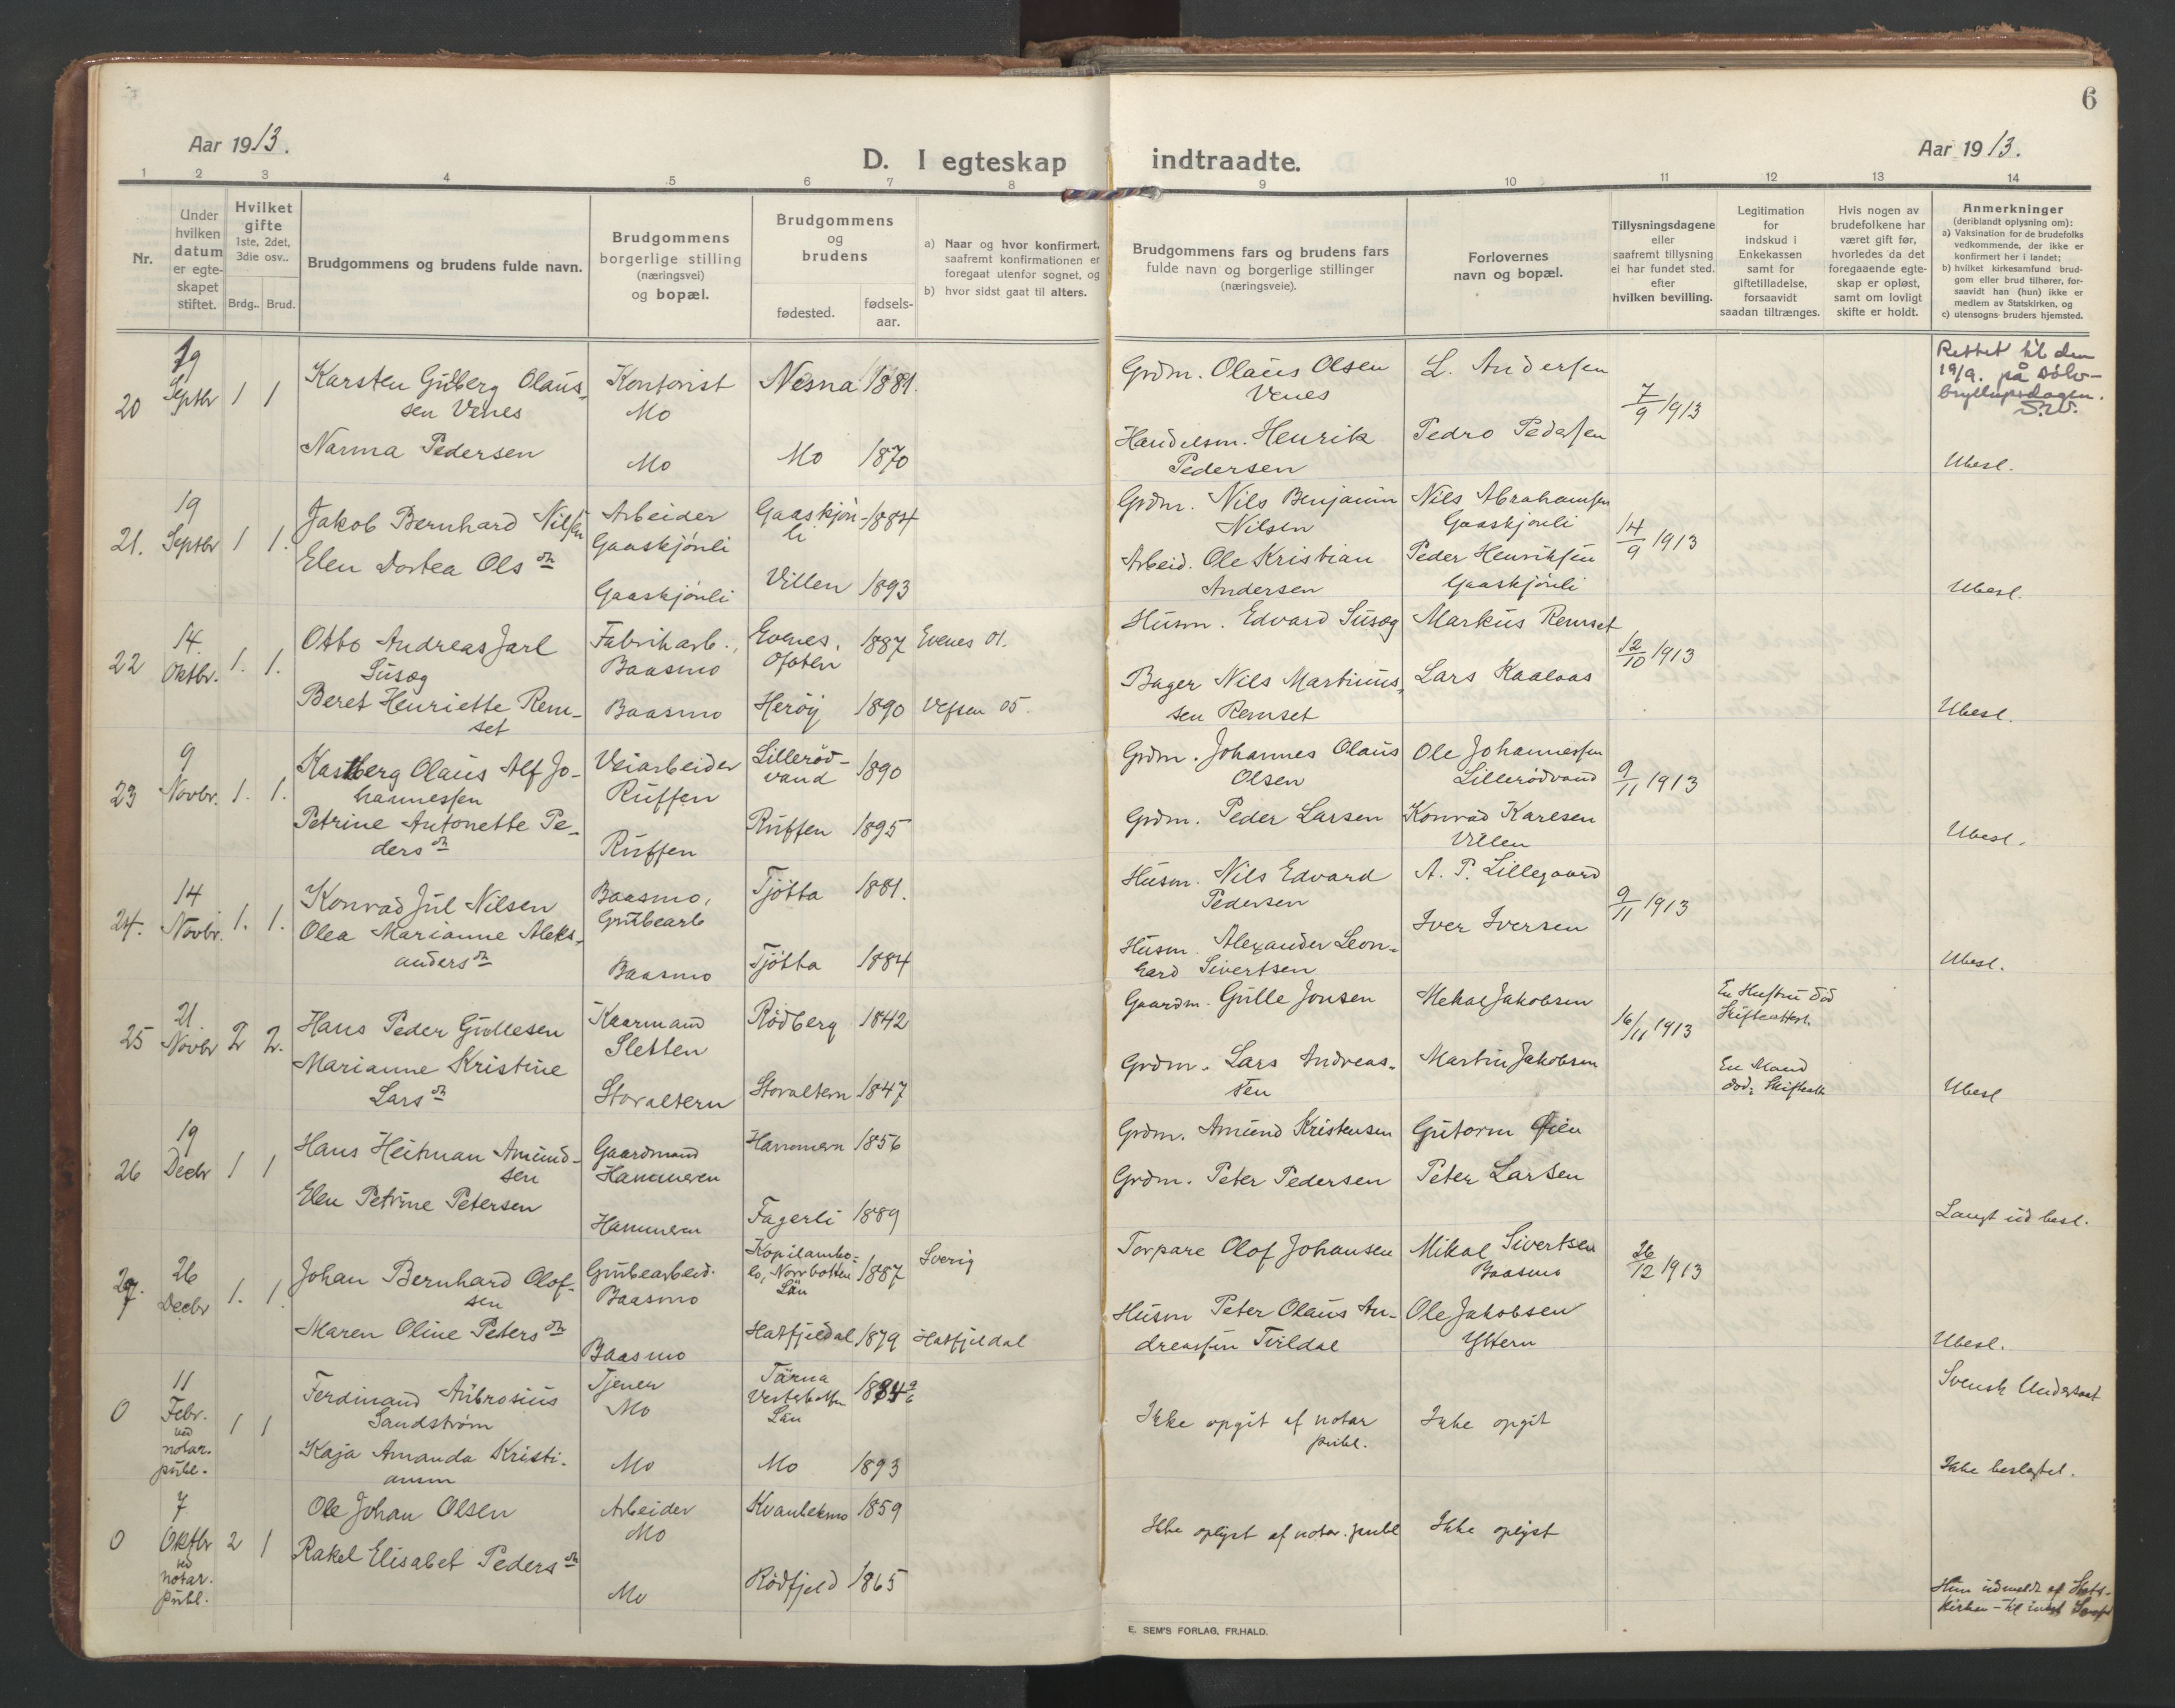 6
Aar 1913.
D. I egteskap indtraadte.
Aar 1913.
1 2 3 4 5 6 7 8 9 10 11 12 13 14
Nr.
Under
hvilken
datum
er egte-
skapet
stiftet.
Hvilket
gifte
1ste, 2det,
3die osv..
Brdg.. Brud.
Brudgommens og brudens fulde navn.
Brudgommens
borgerlige stilling
(næringsvei)
og bopæl.
Brudgommens
og
brudens
fødested.
fødsels-
aar.
a) Naar og hvor konfirmert,
saafremt konfirmationen er
foregaat utenfor sognet, og
b) hvor sidst gaat til alters.
Brudgommens fars og brudens fars
fulde navn og borgerlige stillinger
(næringsveie).
Forlovernes
navn og bopæl.
Tillysningsdagene
eller
saafremt tillysning
ei har fundet sted.
efter
hvilken bevilling.
Legitimation
for
indskud i
Enkekassen
samt for
giftetilladelse,
forsaavidt
saadan tiltrænges.
Hvis nogen av
brudefolkene har
været gift før,
hvorledes da det
foregaaende egte-
skap er opløst,
samt om lovligt
skifte er holdt.
Anmerkninger
(deriblandt oplysning om):
a) Vaksination for de brudefolks
vedkommende, der ikke er
konfirmert her i landet;
b) hvilket kirkesamfund brud-
gom eller brud tilhører, for-
saavidt han (hun) ikke er
medlem av Statskirken, og
c) utensogns- bruders hjemsted.
20
19
Septbr
1 1
Karsten Guberg Olaus-
sen Venes
Narma Pedersen
Kontorist
Mo
Mo
Nesna 1881.
Mo 1870
Grdm. Olaus Olsen
Venes
Handelsm. Henrik
Pedersen
L. Andersen
Pedro Pedersen
7/9 1913
Rettet til den
19/9. på sølv-
bryllupsdagen.
S.W.
Ubesl.
21.
19
Septbr
1 1.
Jakob Bernhard Nilsen
Elen Dortea Olsdt
Arbeider
Gaaskjönli
Gaaskjönli
Gaaskjön-
li
1884
Villen 1893
Grdm. Nils Benjamin
Nilsen
Arbeid. Ole Kristian
Andersen
Nils Abrahamsen
Gaaskjönli
Peder Henriksen
Gaaskjönli
14/9 1913
Ubesl.
22
14.
Oktbr.
1. 1.
Otto Andreas Jarl
Susæg
Beret Henriette Rem-
set
Fabrikarb.,
Baasmo
Baasmo
Evenes,
Ofoten
1887 Evenes 01.
Heröy 1890 Vefsen 05.
Husm. Edvard Susæg
Bager Nils Martinus-
sen Remset
Markus Remset
Lars Kaalaas
12/10 1913
Ubesl.
23
9
Novbr.
1. 1.
Kastberg Olaus Alf Jo-
hannessen
Petrine Antonette Pe-
dersdt
Veiarbeider
Ruffen
Ruffen
Lilleröd-
vand
1890
Ruffen 1895
Grdm. Johannes Olaus
Olsen
Grdm. Peder Larsen
Ole Johannessen
Lillerödvand
Konrad Karlsen
Villen
9/11 1913
Ubesl.
24.
14
Novbr.
1. 1.
Konrad Jul Nilsen
Olea Marianne Aleks-
andersdt
Baasmo,
Grubearb
Baasmo
Tjötta 1881.
Tjötta 1884
Husm. Nils Edvard
Pedersen
Husm. Alexander Leon-
hard Sivertsen
A. P. Lillegaard
Iver Iversen
9/11 1913
Ubesl.
25
21
Novbr
2 2.
Hans Peder Gullesen
Marianne Kristine
Larsdt
Kaarmand
Sletten
Storaltern
Rödberg 1842
Storaltern 1847
Gaardm. Gulle Jonsen
Grdm. Lars Andreas-
sen
Mekal Jakobsen
Martin Jakobsen
16/11 1913
En Hustru död
Skifteattest.
En Mand
död, Skifteatt.
Ubesl
26
19
Decbr
1 1
Hans Heitman Amund-
sen
Elen Petrine Petersen
Gaardmand
Hammeren
Hammeren
Hammern 1856
Fagerli 1889
Grdm. Amund Kristensen
Grdm. Peter Pedersen
Gutorm Øien
Peter Larsen
Langt ud besl.
27.
26
Decbr
1. 1.
Johan Bernhard Olof-
sen
Maren Oline Petersdt
Grubearbeid.
Baasmo
Baasmo
Norrbotten
Län
1887 Sverig
Hatfjeldal 1879 Hatfjeldal
Torpare Olof Johansen
Husm Peter Olaus An-
dreassen Tvildal
Mikal Sivertsen
Baasmo
Ole Jakobsen
Yttern
26/12 1913
Ubesl.
0
11
Febr.
ved
notar.
publ.
1 1
Ferdinand Ambrosius
Sandström
Kaja Amanda Kristi-
ansen
Tjener
Mo
Mo
Tärna
Vesterbotten
Län
1884 9/6
Mo 1893
Ikke opgit af notar
publ.
Ikke opgit
Svensk Undersaat
Ikke beslegtet.
0
7
Oktbr
ved
notar.
publ.
2 1
Ole Johan Olsen
Rakel Elisabet Pedersdt
Arbeider
Mo
Mo
Kvanlekmo 1859
Rödfjeld 1865
Ikke oplyst af notar. publ
Ikke oplyst
Hun udmeldt af Stats-
kirken - til
E. SEM'S FORLAG, FR.HALD.